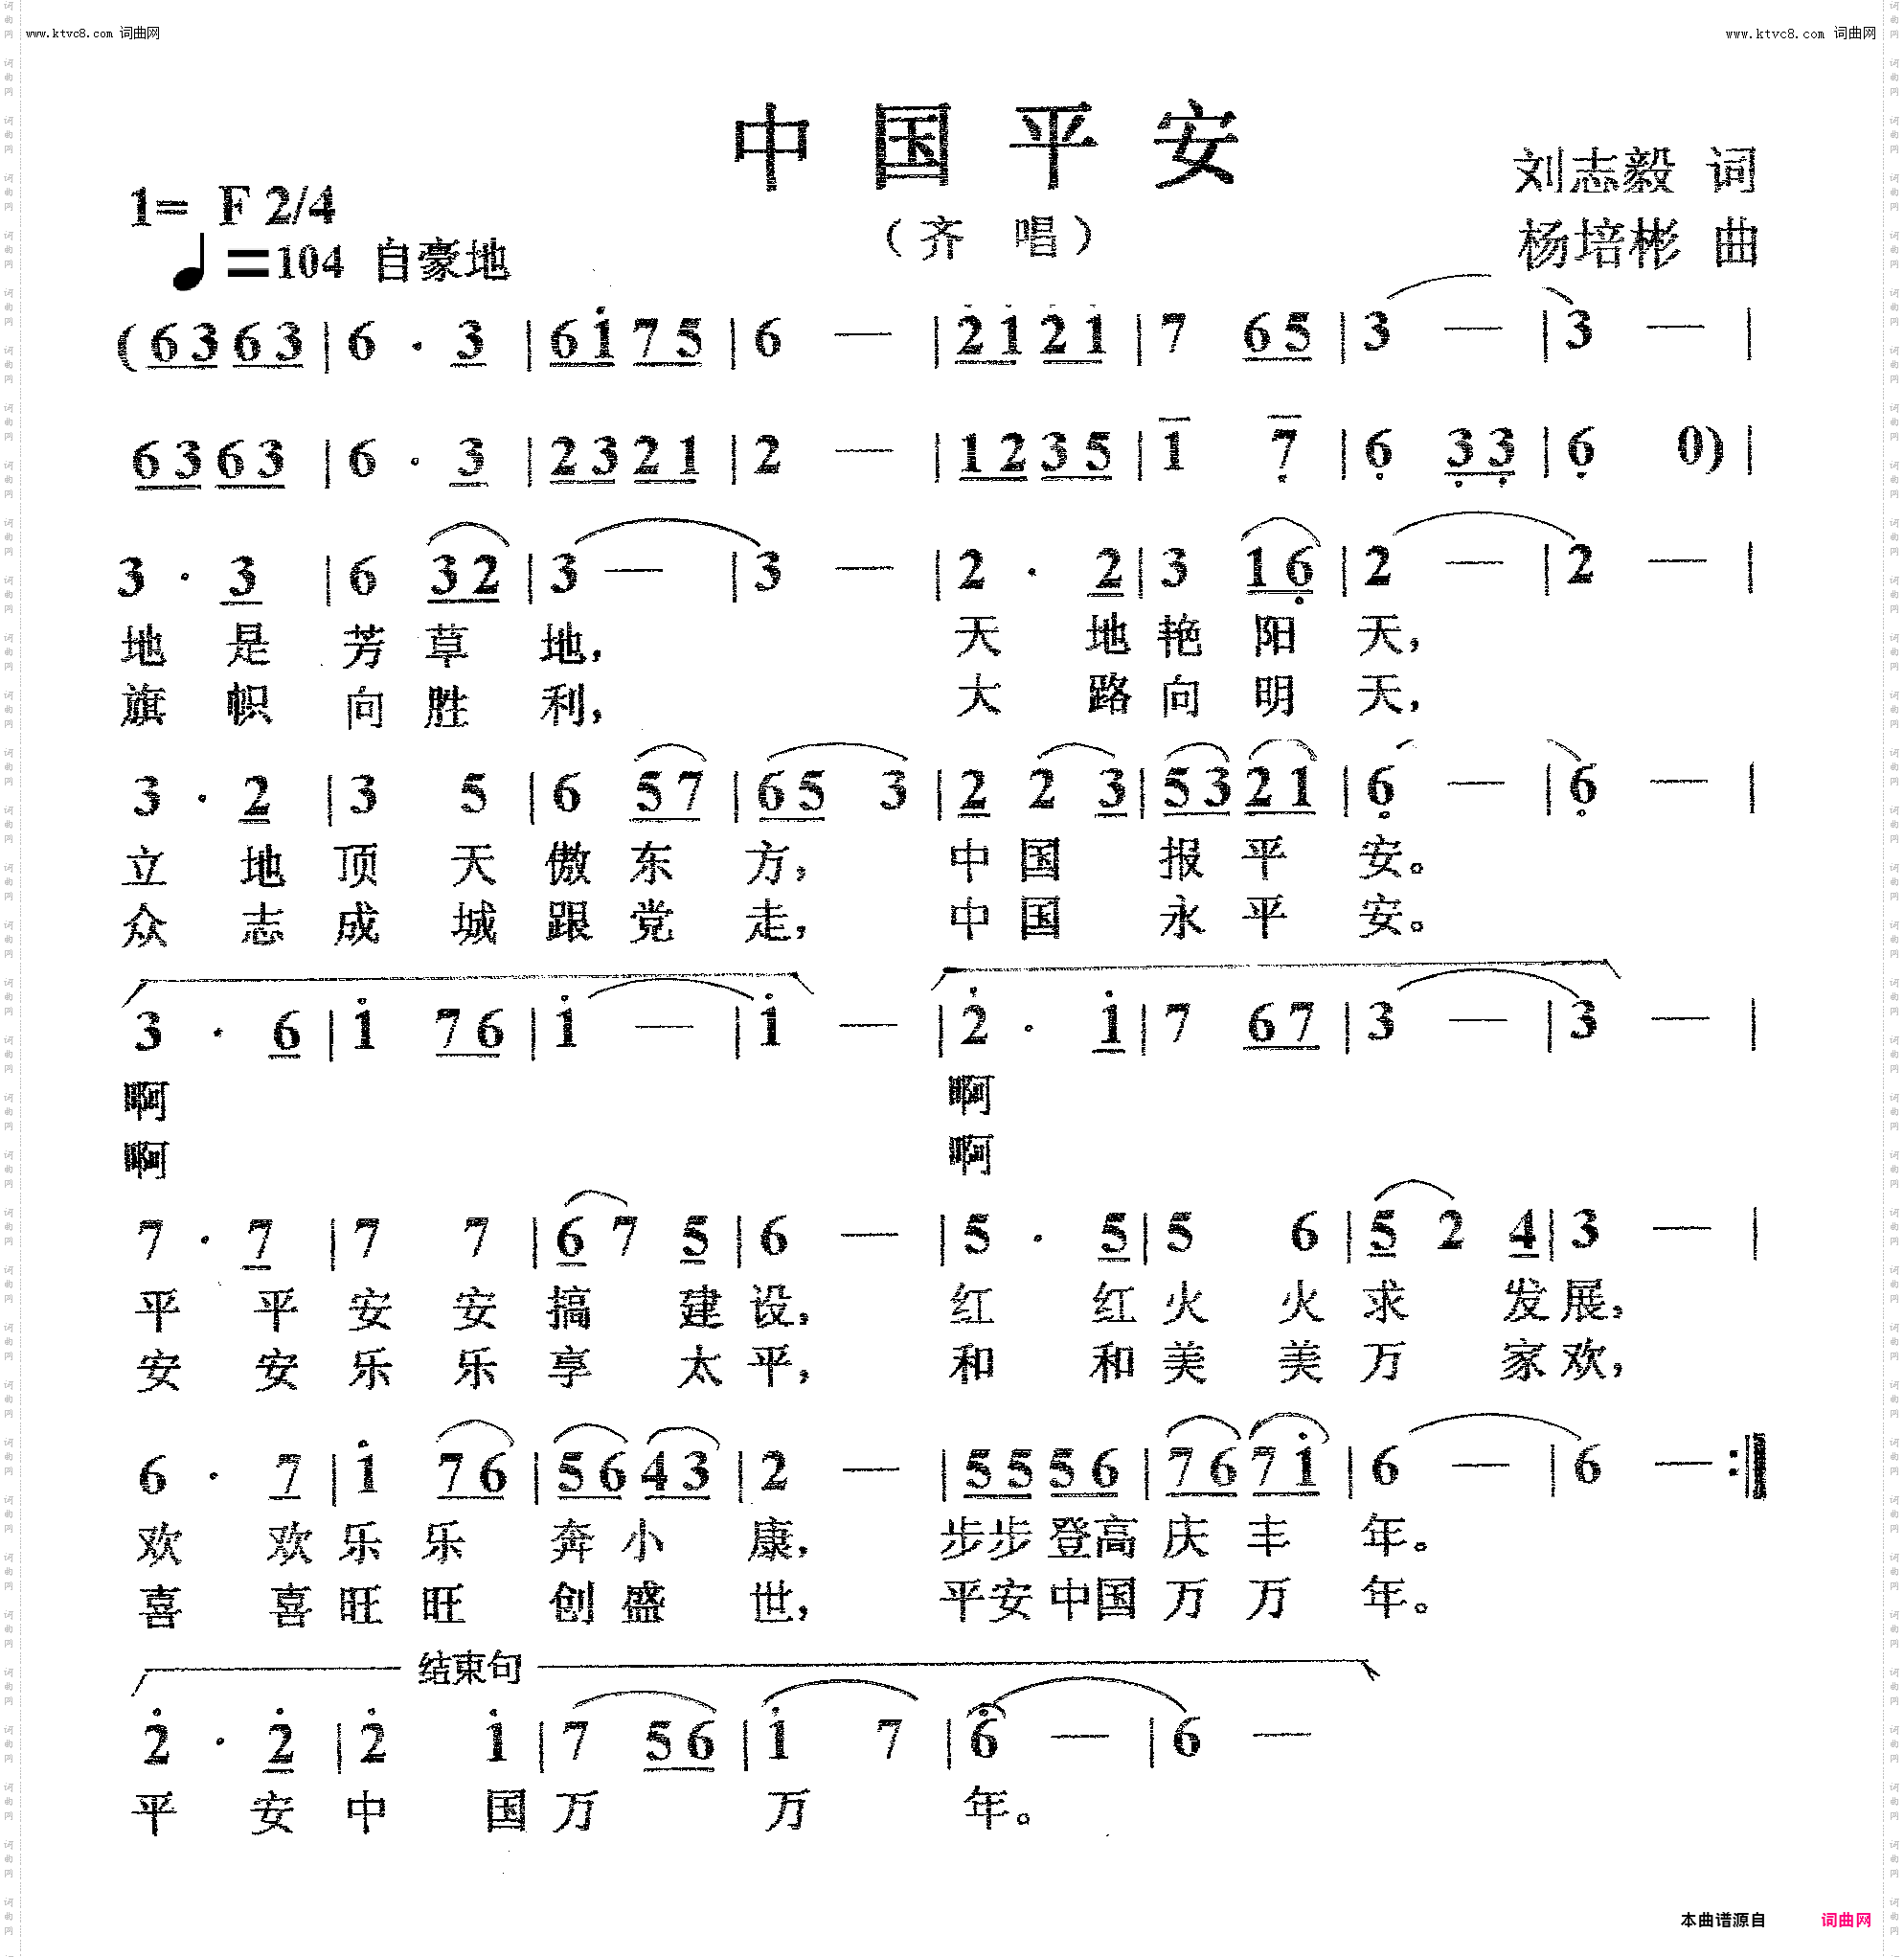 www.ktvc8.com 词曲网
www.ktvc8.com 词曲网
中国平安
(齐 唱)
刘志毅 词
杨培彬 曲
1= F 2/4
♩=104 自豪地
(6 3 6 3 | 6 · 3 | 6 1 7 5 | 6 — | 2 1 2 1 | 7 6 5 | 3 — | 3 — |
6 3 6 3 | 6 · 3 | 2 3 2 1 | 2 — | 1 2 3 5 | 1 7 | 6 3 3 | 6 0) |
3 · 3 | 6 3 2 | 3 — | 3 — | 2 · 2 | 3 1 6 | 2 — | 2 — |
地 是 芳 草 地, 天 地 艳 阳 天,
旗 帜 向 胜 利, 大 路 向 明 天,
3 · 2 | 3 5 | 6 5 7 | 6 5 3 | 2 2 3 | 5 3 2 1 | 6 — | 6 — |
立 地 顶 天 傲 东 方, 中 国 报 平 安。
众 志 成 城 跟 党 走, 中 国 永 平 安。
3 · 6 | 1 7 6 | 1 — | 1 — | 2 · 1 | 7 6 7 | 3 — | 3 — |
啊 啊
啊 啊
7 · 7 | 7 7 | 6 7 5 | 6 — | 5 · 5 | 5 6 | 5 2 4 | 3 — |
平 平 安 安 搞 建 设, 红 红 火 火 求 发 展,
安 安 乐 乐 享 太 平, 和 和 美 美 万 家 欢,
6 · 7 | 1 7 6 | 5 6 4 3 | 2 — | 5 5 5 6 | 7 6 7 1 | 6 — | 6 — :|
欢 欢 乐 乐 奔 小 康, 步 步 登 高 庆 丰 年。
喜 喜 旺 旺 创 盛 世, 平 安 中 国 万 万 年。
结束句
2 · 2 | 2 1 | 7 5 6 | 1 7 | 6 — | 6 —
平 安 中 国 万 万 年。
本曲谱源自 词曲网